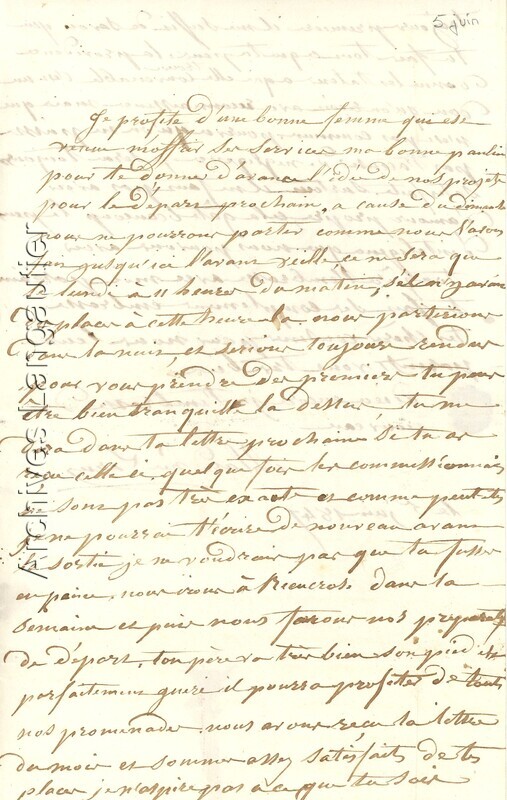 5 juin
Je profite d'une bonne femme qui est
venu m'offrir ses services ma bonne pauline
pour te donner d'avance l'idée de nos projets
pour le départ prochain, a cause du dimanche
nous ne pourrons partir comme nous l'avons
jusqu'ici l'avant veille, ce ne sera que
lundi à 11 heures du matin, s'il n'y avait
place à cette heure la nous partirions
dans la nuit, et serions toujours rendus
pour vous prendre des premiers tu peux
être bien tranquille la dessus, tu me
diras dans ta lettre prochaine si tu as
reçu celle ci, quelque fois les commissionnaires
ne sont pas très exacts et comme peut etre
je ne pourrai t'écrire de nouveau avant
la sortie je ne voudrais pas que tu fusses
en peine, nous irons à Rieucros dans la
semaine et puis nous ferons nos préparatifs
de départ, ton père va très bien son pied est
parfaitement gueri il pourra profiter de toutes
nos promenades. nous avons reçu la lettre
du mois et sommes assez satisfaits de tes
places je n'aspire pas a ce que tu sois
Archives Lengautier